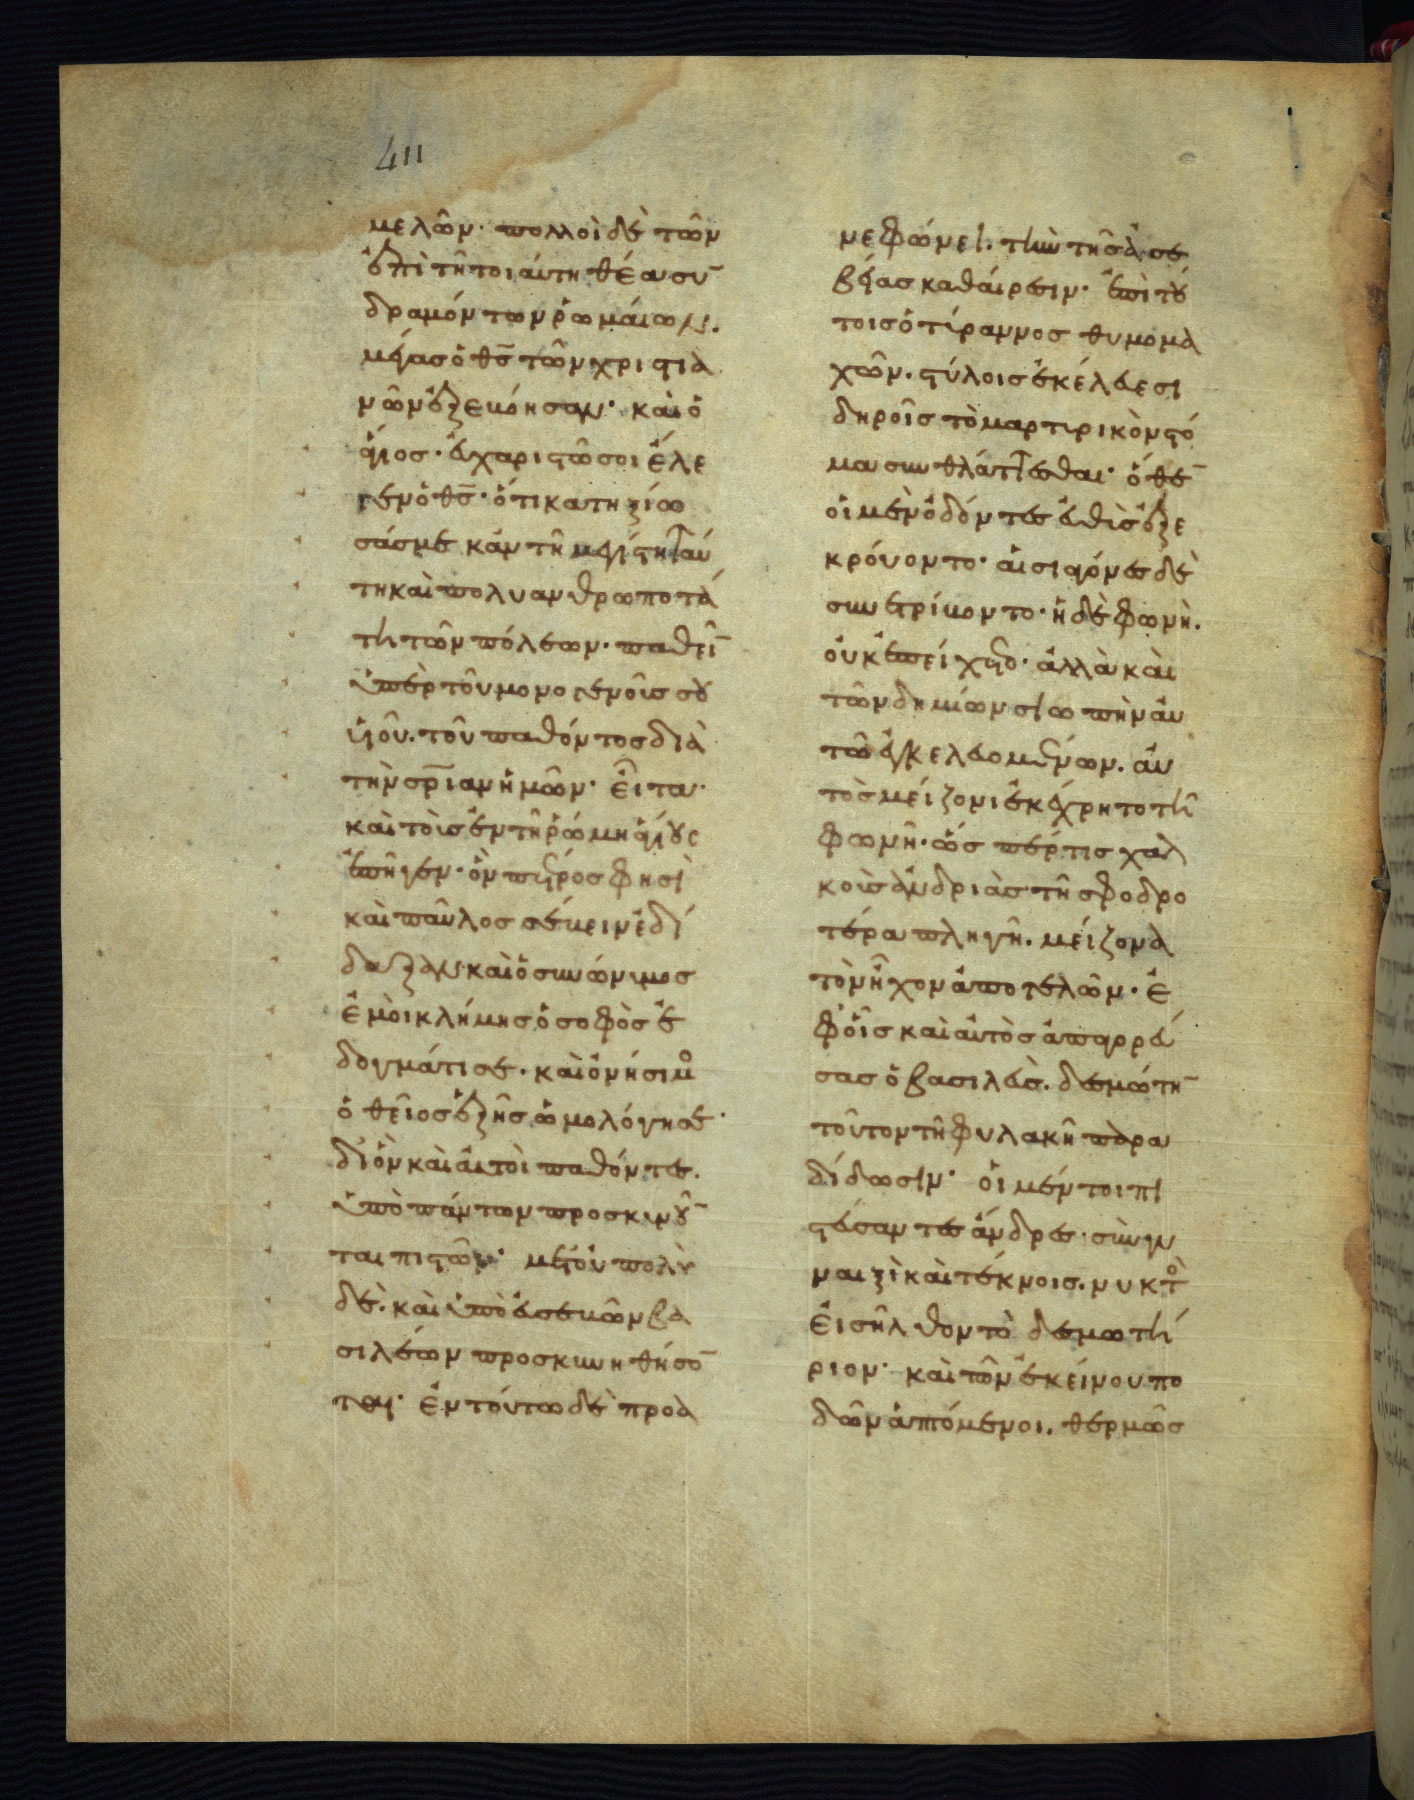 411
μελῶν· πολλοὶ δὲ τῶν
ἐπὶ τῆ τοιάυτη θέα συ̅
δραμόντων ῥωμάιων.
μέγασ ὁ θ̅σ̅ τῶν χριϛια
νῶν ἐξεβόησαν· καὶ ὁ
ἅγιος· ἐυχαριϛῶ σοι ἔλε
γεν ὁ θ̅σ̅· ὅτι κατηξίω
σάσ με κἀν τῆ μεγίϛη ταύ
τη καὶ πολυανθρωποτά
τη τῶν πόλεων· παθεῖ̅
ὑπὲρ τοῦ μονογενοῦσ σου
ὑιοῦ. τοῦ παθόντοσ διὰ
τὴν σ̅ρ̅ίαν ἡμῶν· εἶτα·
καὶ τοῖσ ἐν τῆ ῥώμη ἁγίους
ἐπῆγεν· ὃν πέτρος φησὶ
καὶ παῦλοσ σέβειν ἐδί
δαξαν καὶ ὁ συνώνυμοσ
ἐμοὶ κλήμησ ὁ σοφὸσ ἐ
δογμάτισε. καὶ ὀνήσιμο
ὁ θεῖοσ ἐξῆσ ὡμολόγησε·
δι ὃν καὶ ἀυτοὶ παθόντες.
ὑπὸ πάντων προσκυνοῦ̅
ται πιϛῶν· μετ ὀυ πολὺ
δὲ. καὶ ὑπὸ ἐυσεβῶν βα
σιλέων προσκυνηθήσο̅
ται· ἐν τούτω δὲ προα
νεφώνει. τὴν τῆσ ἀσε
βείασ καθάιρεσιν· ἐπὶ τού
τοισ ὁ τύραννοσ θυμομα
χῶν. ϛύλοισ ἐκέλευε σι
δηροῖσ τὸ μαρτυρικὸν ϛό
μα συνθλάττεσθαι· ὅθε̅
οἱ μὲν ὀδόντεσ ἐυθὺσ ἐξε
κρούοντο· ἁι σιαγόνεσ δὲ
συνετρίβοντο· ἡ δὲ φωνὴ.
ὀυκ ἐπείχετο· ἀλλὰ καὶ
τῶν δημίων σιωπὴν ἀυ
τῶ ἐγκελευομένων. ἀυ
τὸσ μείζονι ἐκέχρητο τῆ
φωνῆ. ὥσπέρ τισ χαλ
κοῦσ ἀνδριὰσ τῆ σφοδρο
τέρα πληγῆ. μείζονα
τὸν ἦχον ἀποτελῶν· ἐ
φ οἷσ καὶ ἀυτὸσ ἀπαγορεύ
σασ ὁ βασιλεὺσ. δεσμώτη̅
τοῦτον τῆ φυλακῆ παρα
δίδωσιν· οἱ μέντοι πι
ϛεύσαντεσ ἄνδρεσ· σὺν γυ
ναιξὶ καὶ τέκνοισ. νυκτὸ
ἐισῆλθον τὸ δεσμωτή
ριον· καὶ τῶν ἐκείνου πο
δῶν ἁπτόμενοι. θερμῶσ